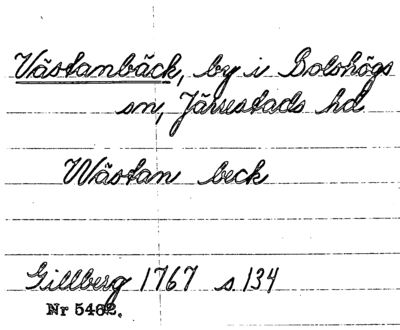 Västanbäck, by i Bolshögs
sn, Järrestads hd
Wästan beck
Gillberg 1767 s 134
Nr 5462.